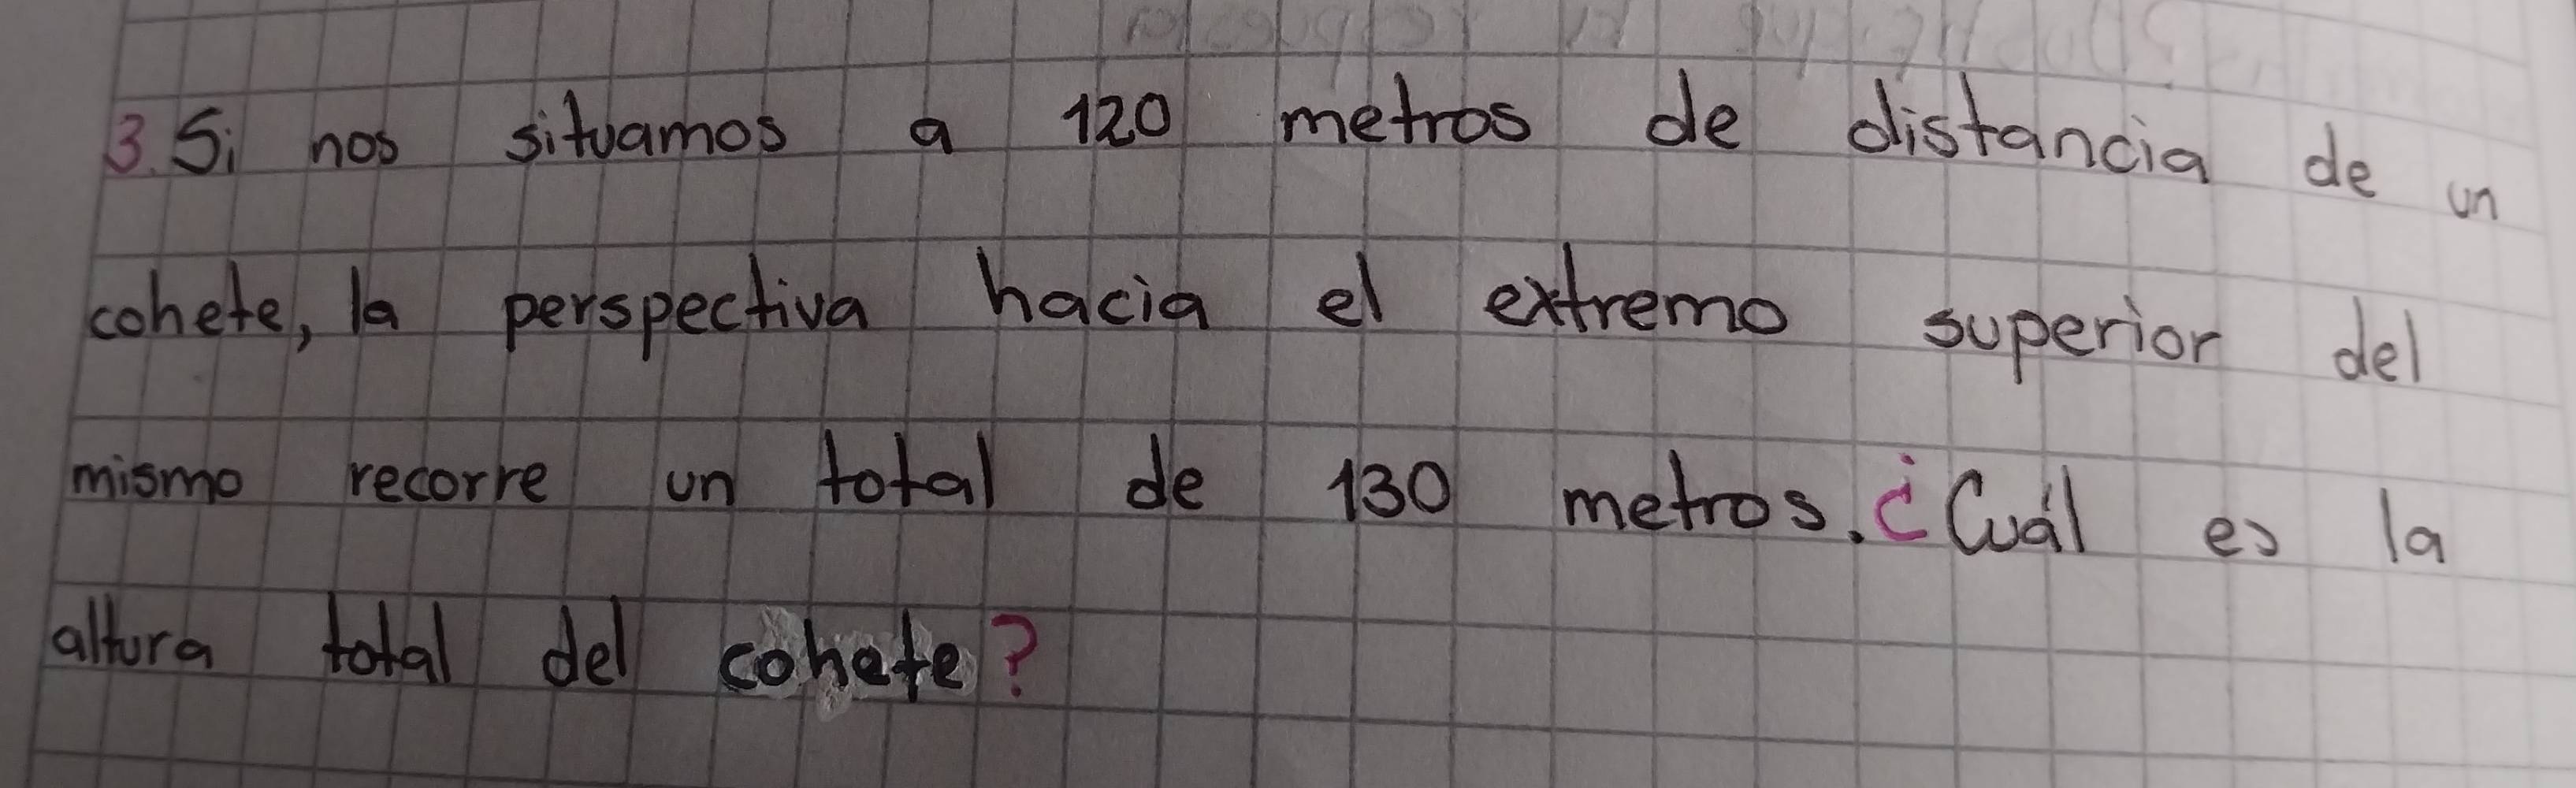 3. Si nos situamos a 120 metros de distancia de un
cohete, la perspectiva hacia el extremo superior del
mismo recorre un total de 130 metros. ¿Cuál es la
altura total del cohete?